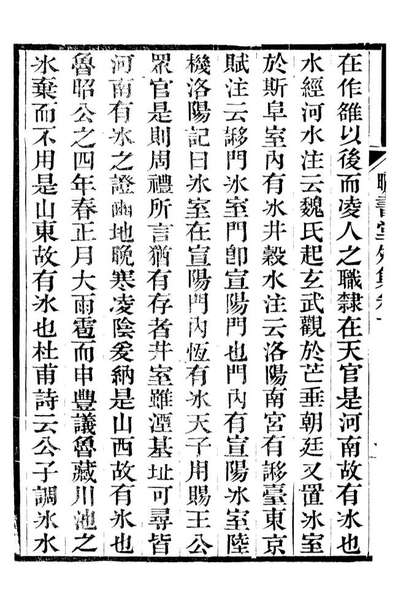 在作雒以後而凌人之職隸在天官是河南故有冰也
水經河水注云魏氏起玄武觀於芒垂朝廷又置冰室
於斯阜室內有冰井穀水注云洛陽南宮有謻臺東京
賦注云謻門冰室門卽宣陽門也門內有宣陽冰室陸
機洛陽記曰冰室在宣陽門內恆有冰天子用賜王公
眾官是則周禮所言猶有存者井室雖湮基址可尋皆
河南有冰之證豳地晚寒凌陰爰納是山西故有冰也
魯昭公之四年春正月大雨雹而申豐議魯藏川池之
冰棄而不用是山東故有冰也杜甫詩云公子調冰水